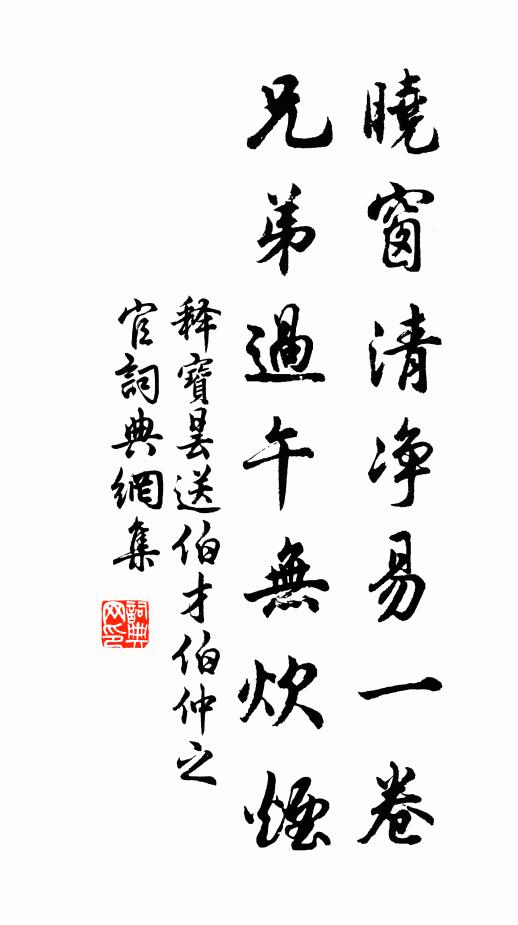 曉窗清净易一卷
兄弟過午無炊煙
释寶曇送伯才伯仲之
官詞典網集
詞典
网印